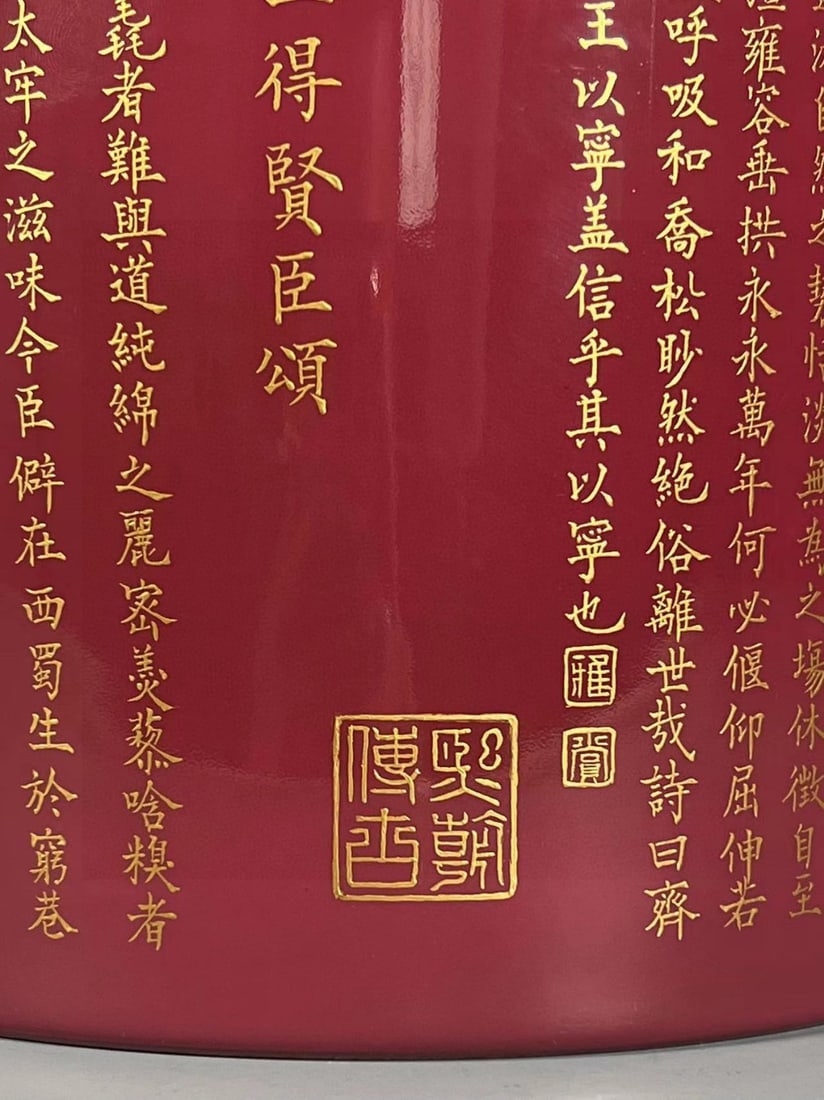 自然之勢恬淡無為之場休徵自至
雍容垂拱永永萬年何必偃仰屈伸若
呼吸和喬松眇然絶俗離世哉詩曰齊
王以寧盖信乎其以寧也
雅
賞
得賢臣頌
熙朝
傳古
毳者難與道純綿之麗密羹藜唅糗者
太牢之滋味今臣僻在西蜀生於窮巷